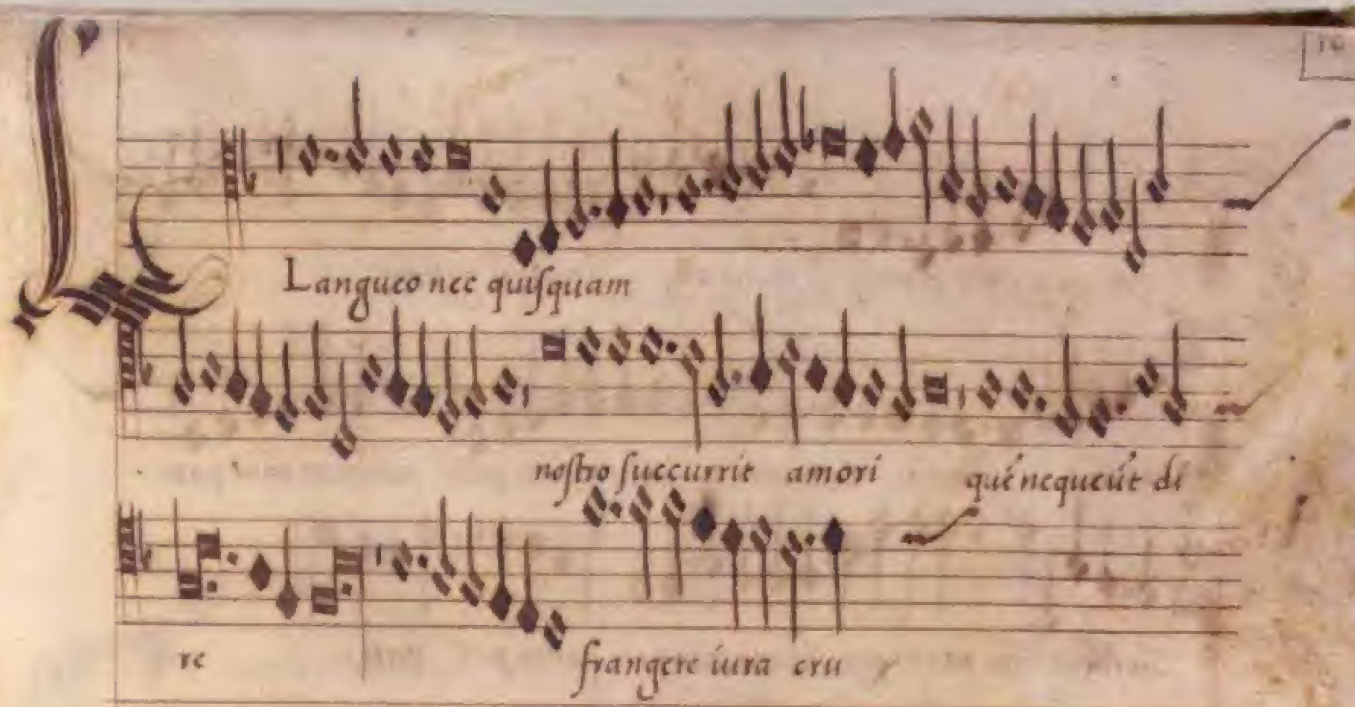 L
Langueo nec quiſquam
noſtro ſuccurrit amori que᷑ nequeu᷑t di
re frangere iura cru